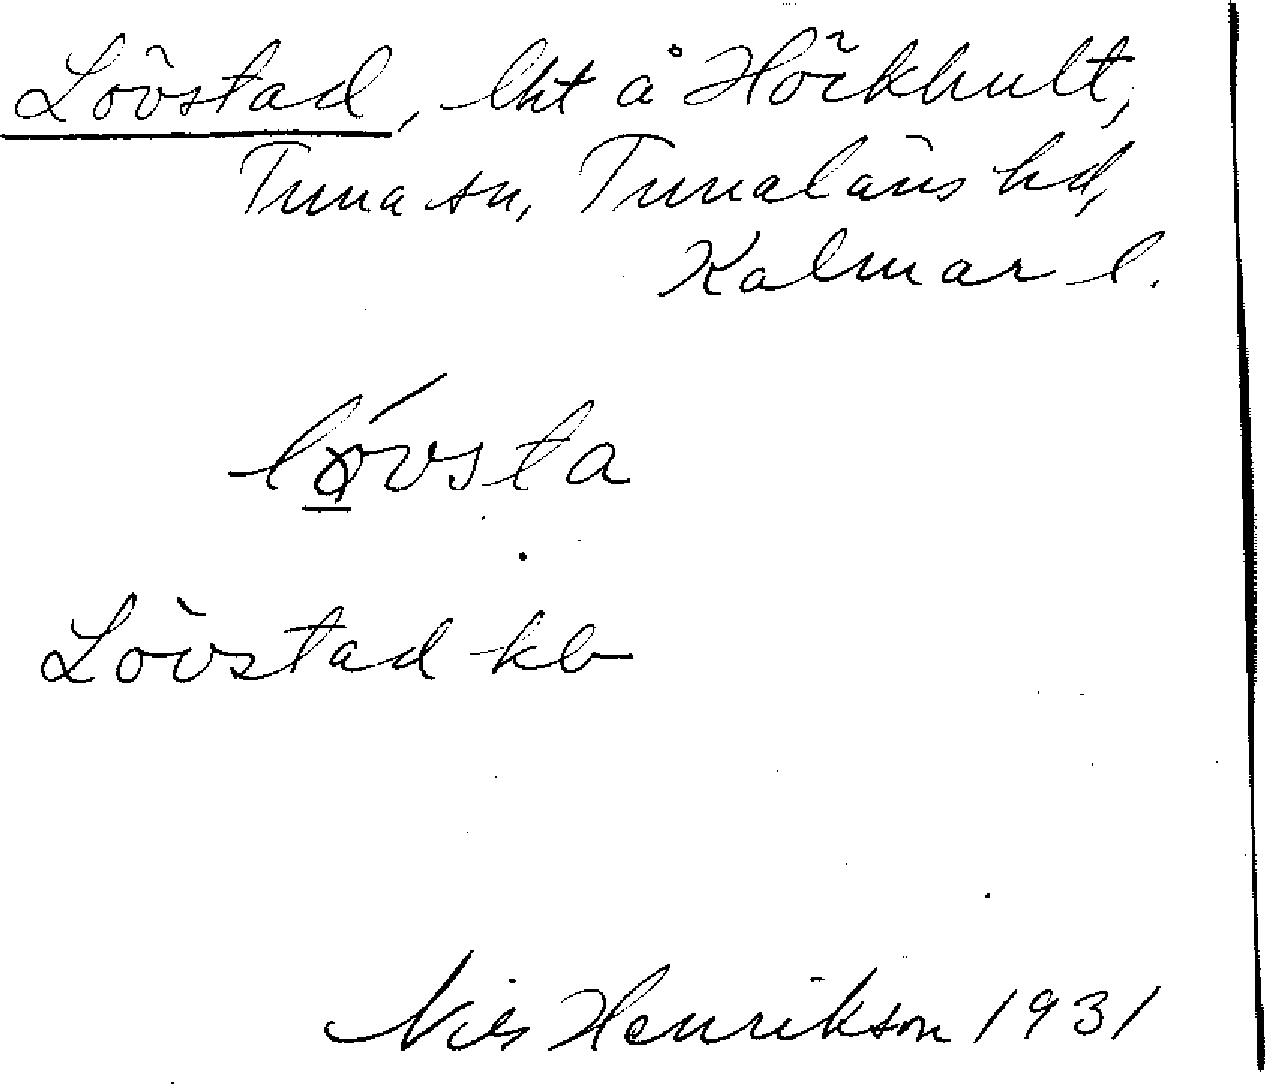 Lövstad, lht å Hökhult,
Tuna sn, Tunaläns hd,
Kalmar l.
løvsta
Lövstad kb
Nils Henrikson 1931